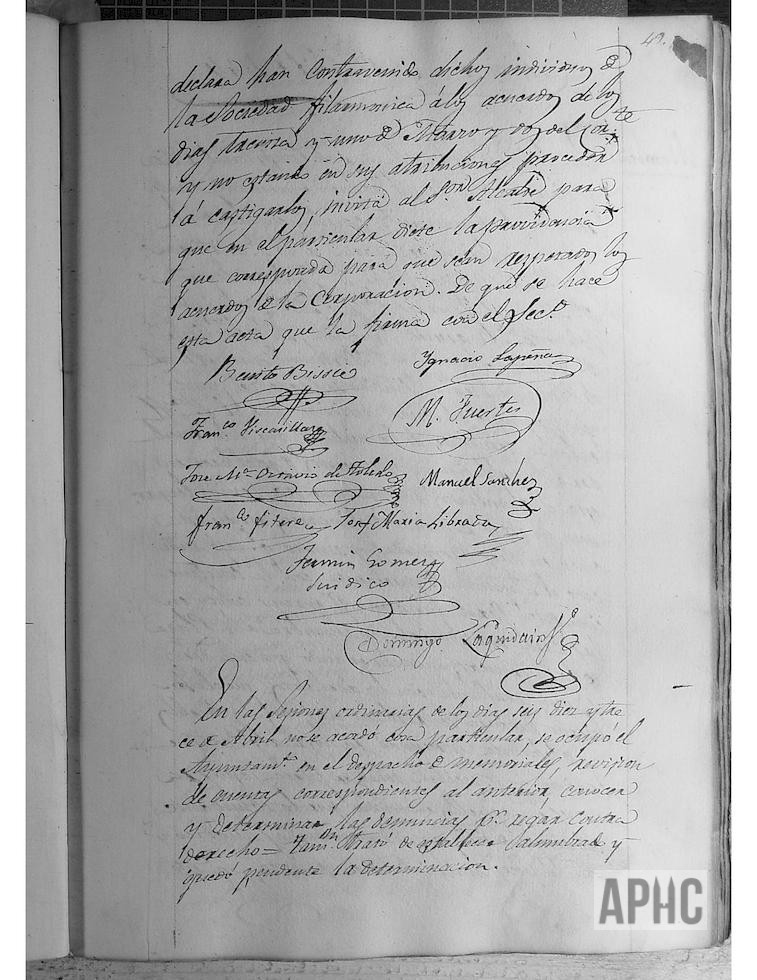 49.
declara han Contravenido dichos individuos de
la Sociedad filarmonica á los acuerdos de los
dias treinta y uno de Marzo y dos del cor.te
y no estando en sus atribuciones proceder
á castigarlos, invita al S.or Alcalde para
que en el particular diese la providencia
que corresponda para que sean respetados los
acuerdos de la Corporacion. De que se hace
esta acta que la firma con el Sec.o
Benito Ignacio Lapeña
Fran.co M. Fuertes
Jose M.a de Toledo Manuel Sanchez
Fran.co Fitere Josef Maria Librada
Fermin Gomez
Sindico
Domingo
En las Sesiones ordinarias de los dias seis diez y tre
ce de Abril no se acordó cosa particular, se ocupó el
Ayuntam.to en el despacho de memoriales, revision
de cuentas correspondientes al anterior, conocer
y determinar las denuncias p.r regar contra
derecho = Tam.bn trató de establecer l'alumbrado y
quedó pendiente la determinacion.
APHC